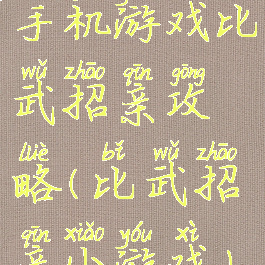 手机游戏比
wǔ zhāo qīn gōng
武招亲攻
lüè bǐ wǔ zhāo
略(比武招
qīn xiǎo yóu xì
亲小游戏)